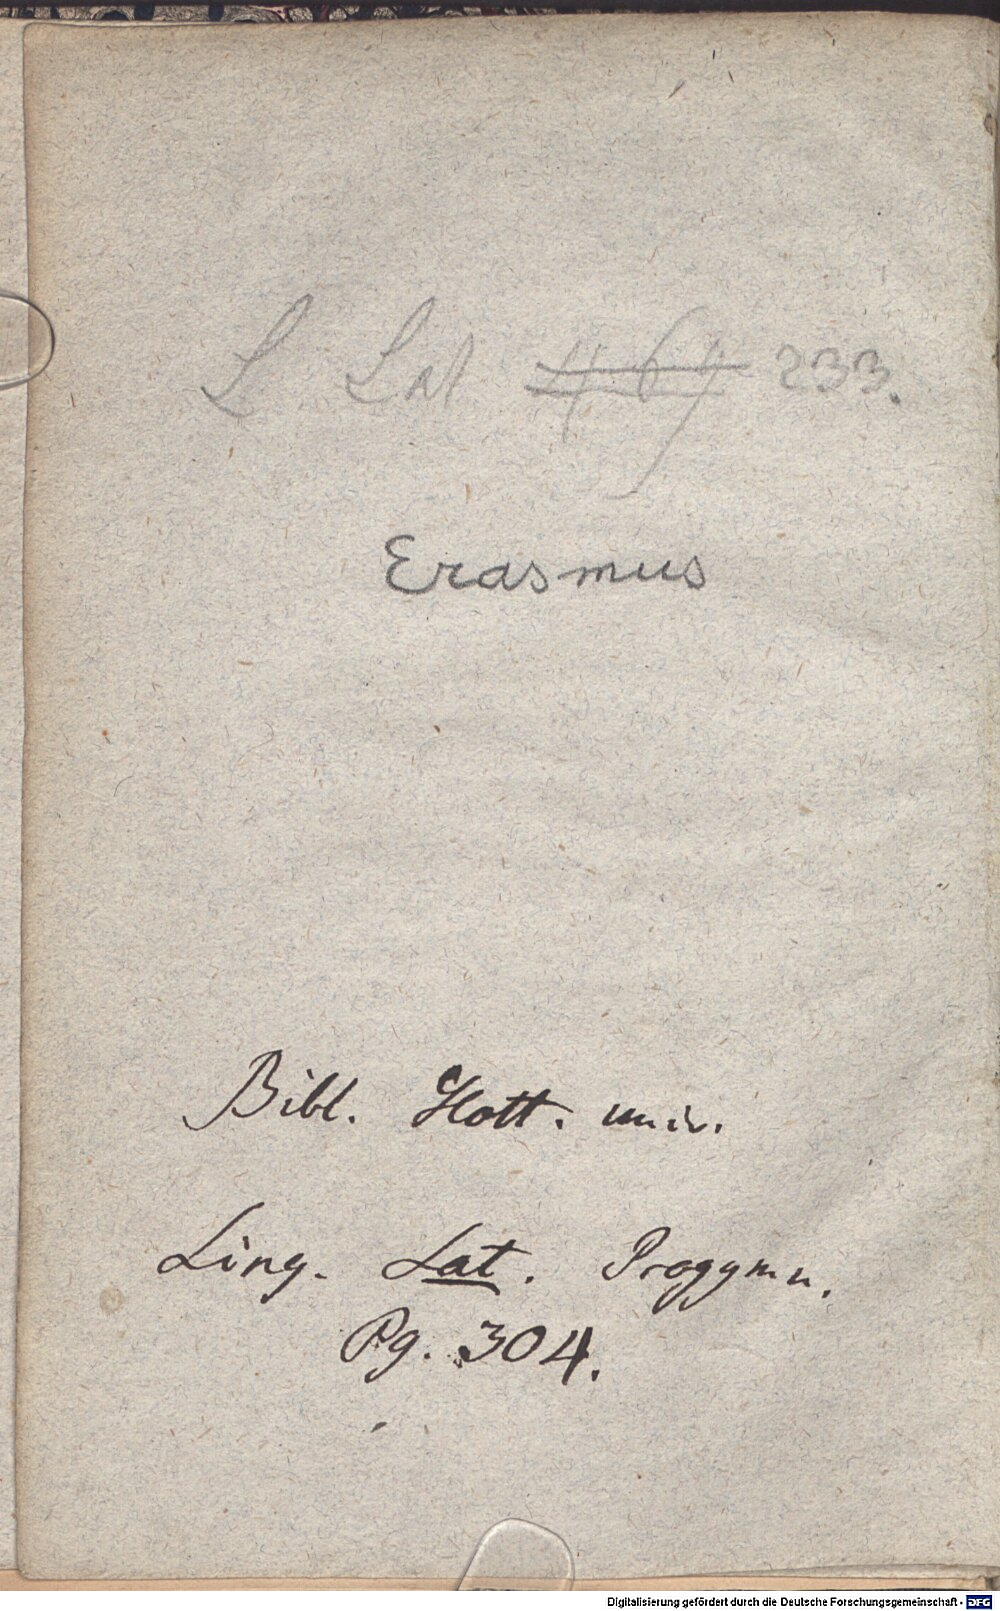 L Lat 467 233.
Erasmus
Bibl. Hott. univ.
Ling. Lat. Progymn.
Pg. 304.
Digitalisierung gefördert durch die Deutsche Forschungsgemeinschaft - DFG